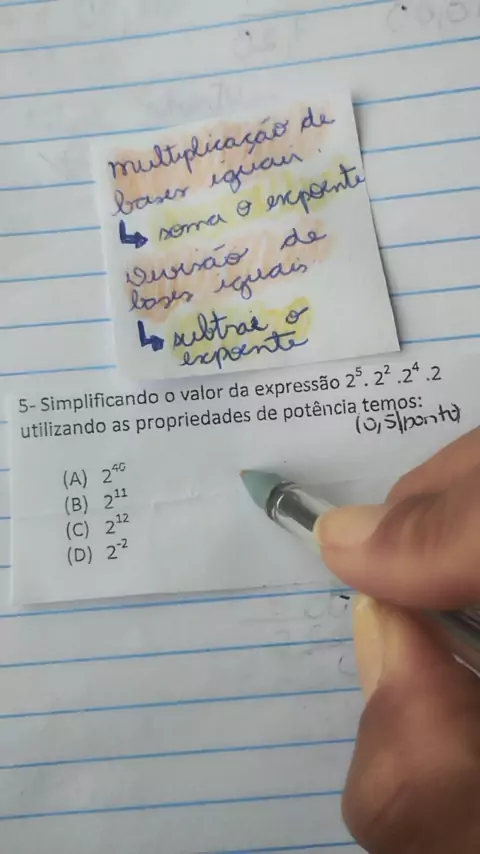 multiplicação de
bases iguais.
↳ soma o expoente
Divisão de
bases iguais
↳ subtrai o
expoente
5- Simplificando o valor da expressão 2⁵. 2² .2⁴ .2
utilizando as propriedades de potência temos:
(0,5 ponto)
(A) 2⁴⁰
(B) 2¹¹
(C) 2¹²
(D) 2⁻²